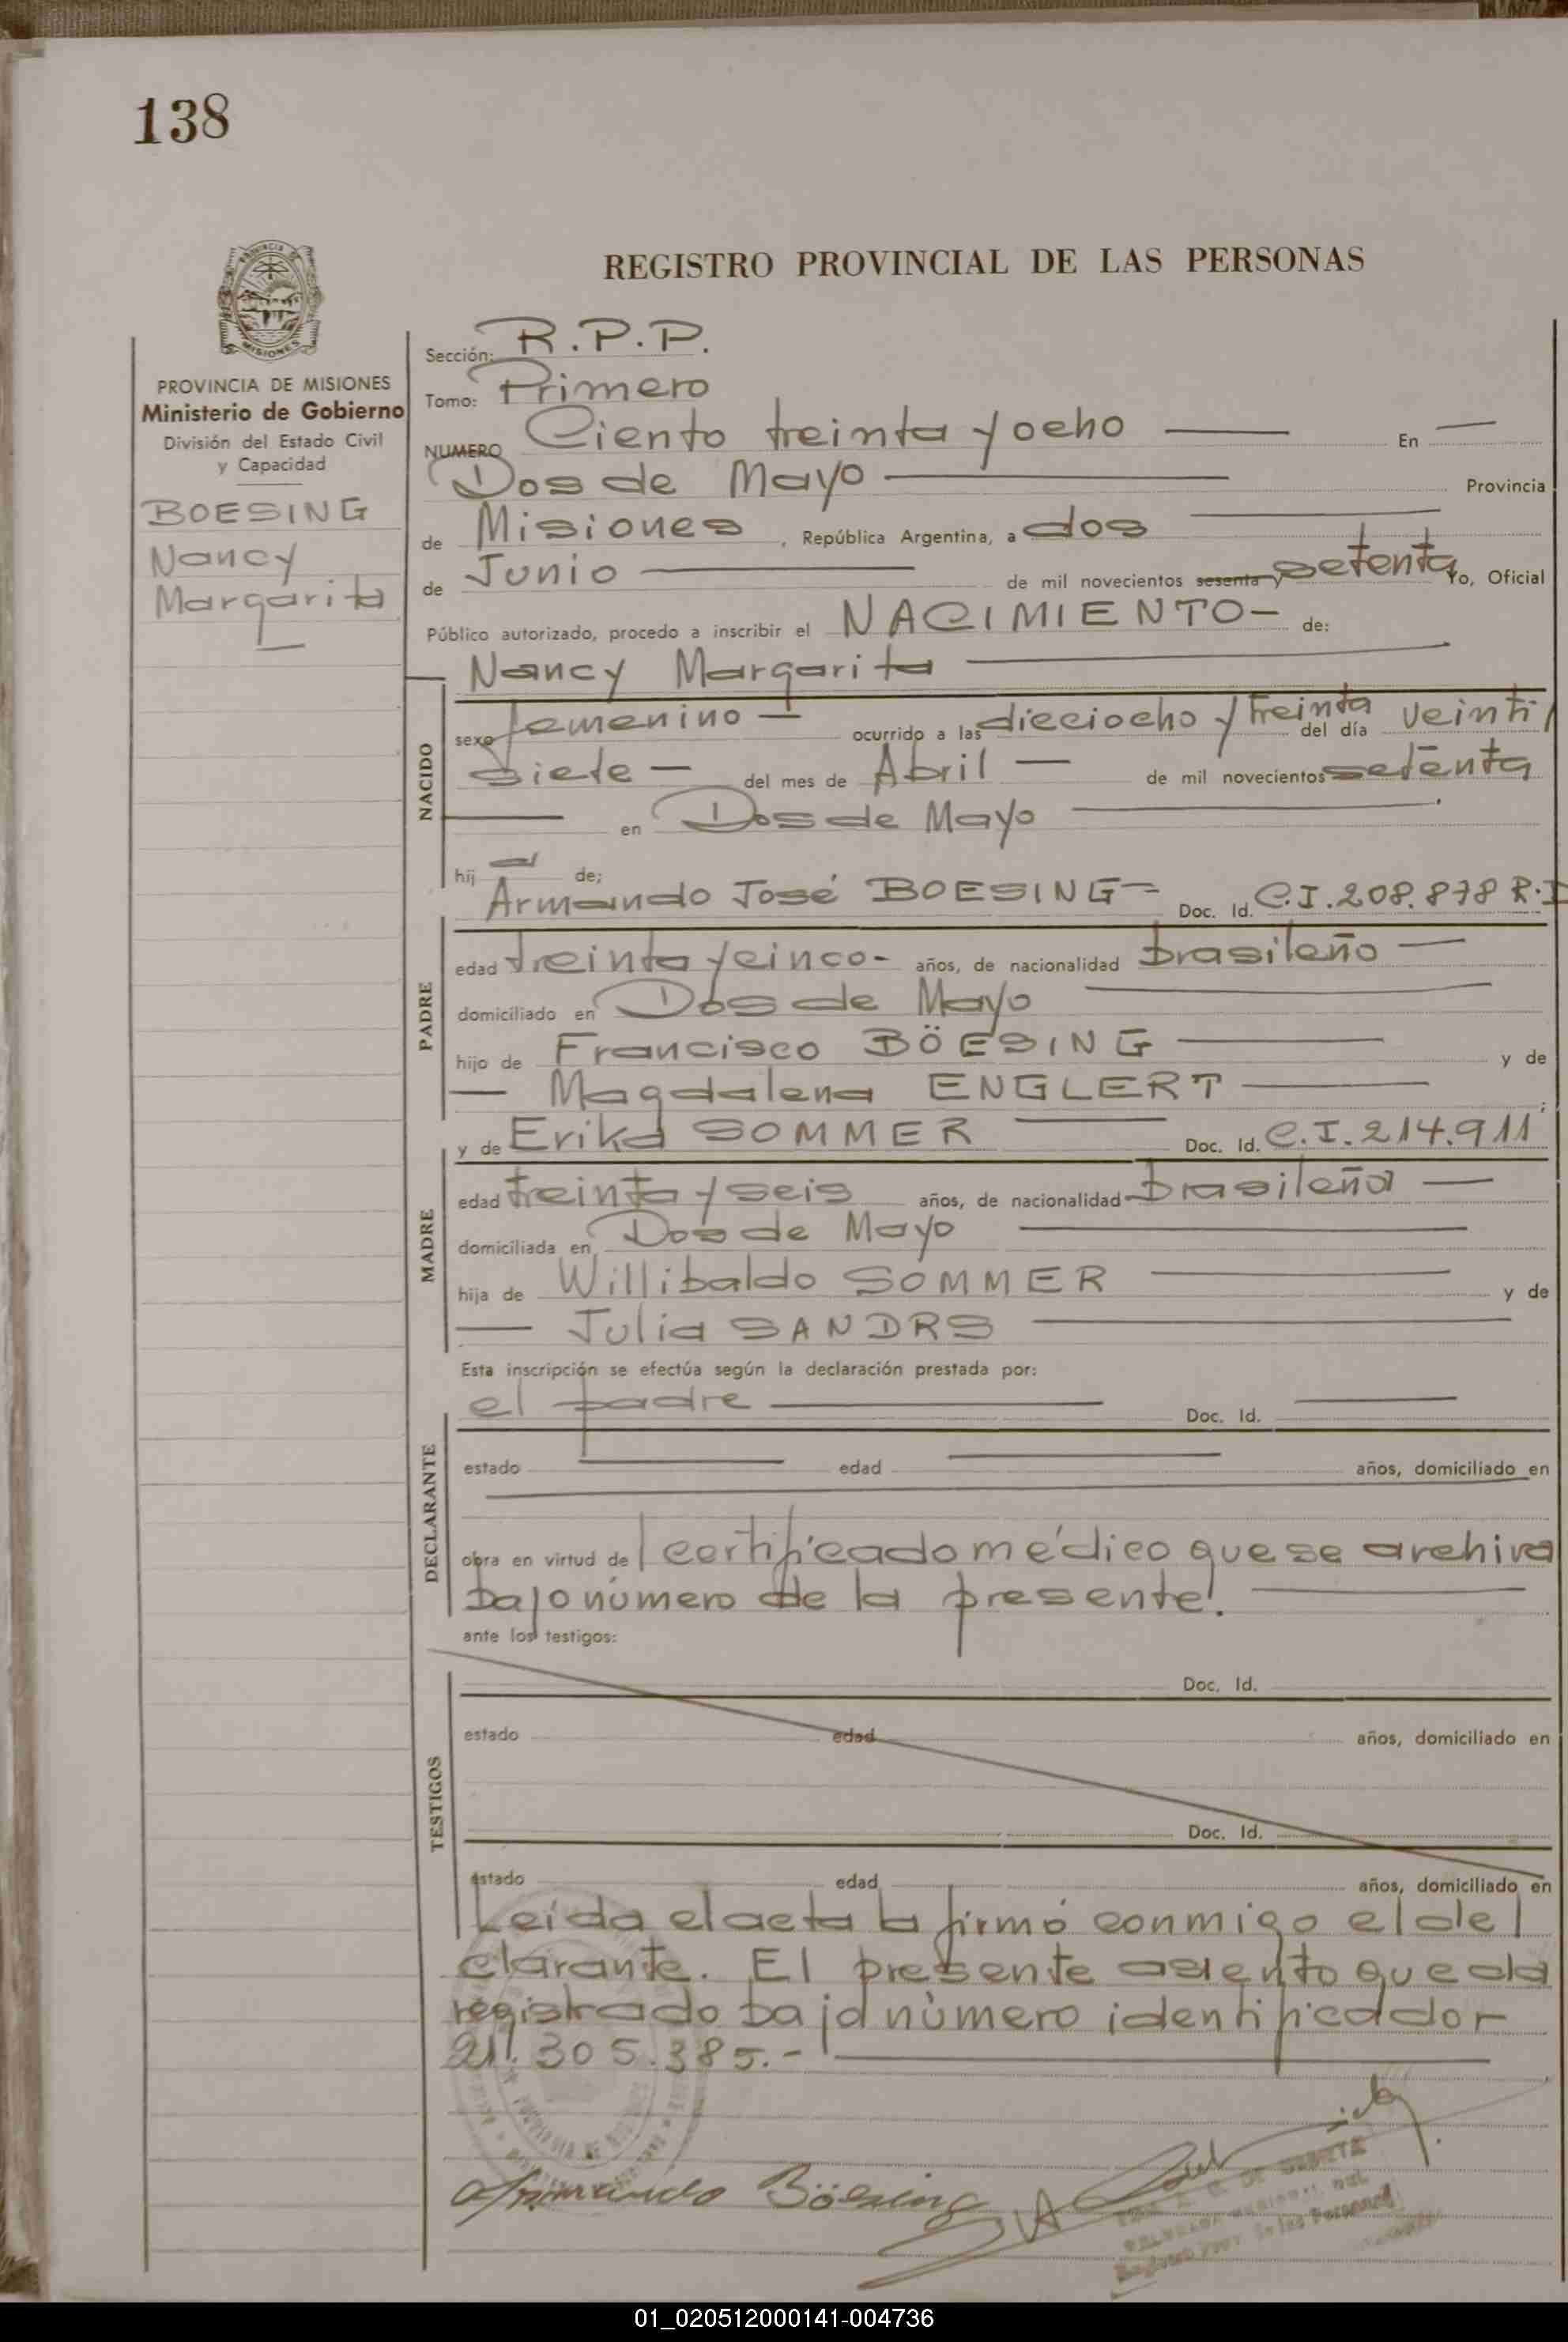 138
REGISTRO PROVINCIAL DE LAS PERSONAS
PROVINCIA DE MISIONES
Ministerio de Gobierno
División del Estado Civil
y Capacidad
BOESING
Nancy
Margarita
Sección: R.P.P.
Tomo: Primero
NUMERO Ciento treinta y ocho En
Dos de Mayo Provincia
de Misiones, República Argentina, a dos
de Junio de mil novecientos sesenta y setenta Yo, Oficial
Público autorizado, procedo a inscribir el NACIMIENTO- de:
Nancy Margarita
NACIDO
sexo femenino — ocurrido a las dieciocho y treinta del día veinti
siete — del mes de Abril — de mil novecientos setenta
en Dos de Mayo
hij a de;
Armando José BOESING Doc. Id. C.I.208.878 R.I
PADRE
edad treinta y cinco- años, de nacionalidad brasileño —
domiciliado en Dos de Mayo
hijo de Francisco BÖESING y de
— Magdalena ENGLERT ;
y de Erika SOMMER Doc. Id. C.I.214.911
MADRE
edad treinta y seis años, de nacionalidad brasileña —
domiciliada en Dos de Mayo
hija de Willibaldo SOMMER y de
— Julia SANDRS
Esta inscripción se efectúa según la declaración prestada por:
el padre Doc. Id.
DECLARANTE
estado edad años, domiciliado en
obra en virtud de l certificado médico que se archiva
bajo número de la presente.
ante los testigos:
TESTIGOS
Doc. Id.
estado edad años, domiciliado en
Doc. Id.
estado edad años, domiciliado en
Leída el acta la firmó conmigo el de
clarante. El presente asiento queda
registrado bajo número identificador
21.305.385.-
Armando Böesing
01_020512000141-004736